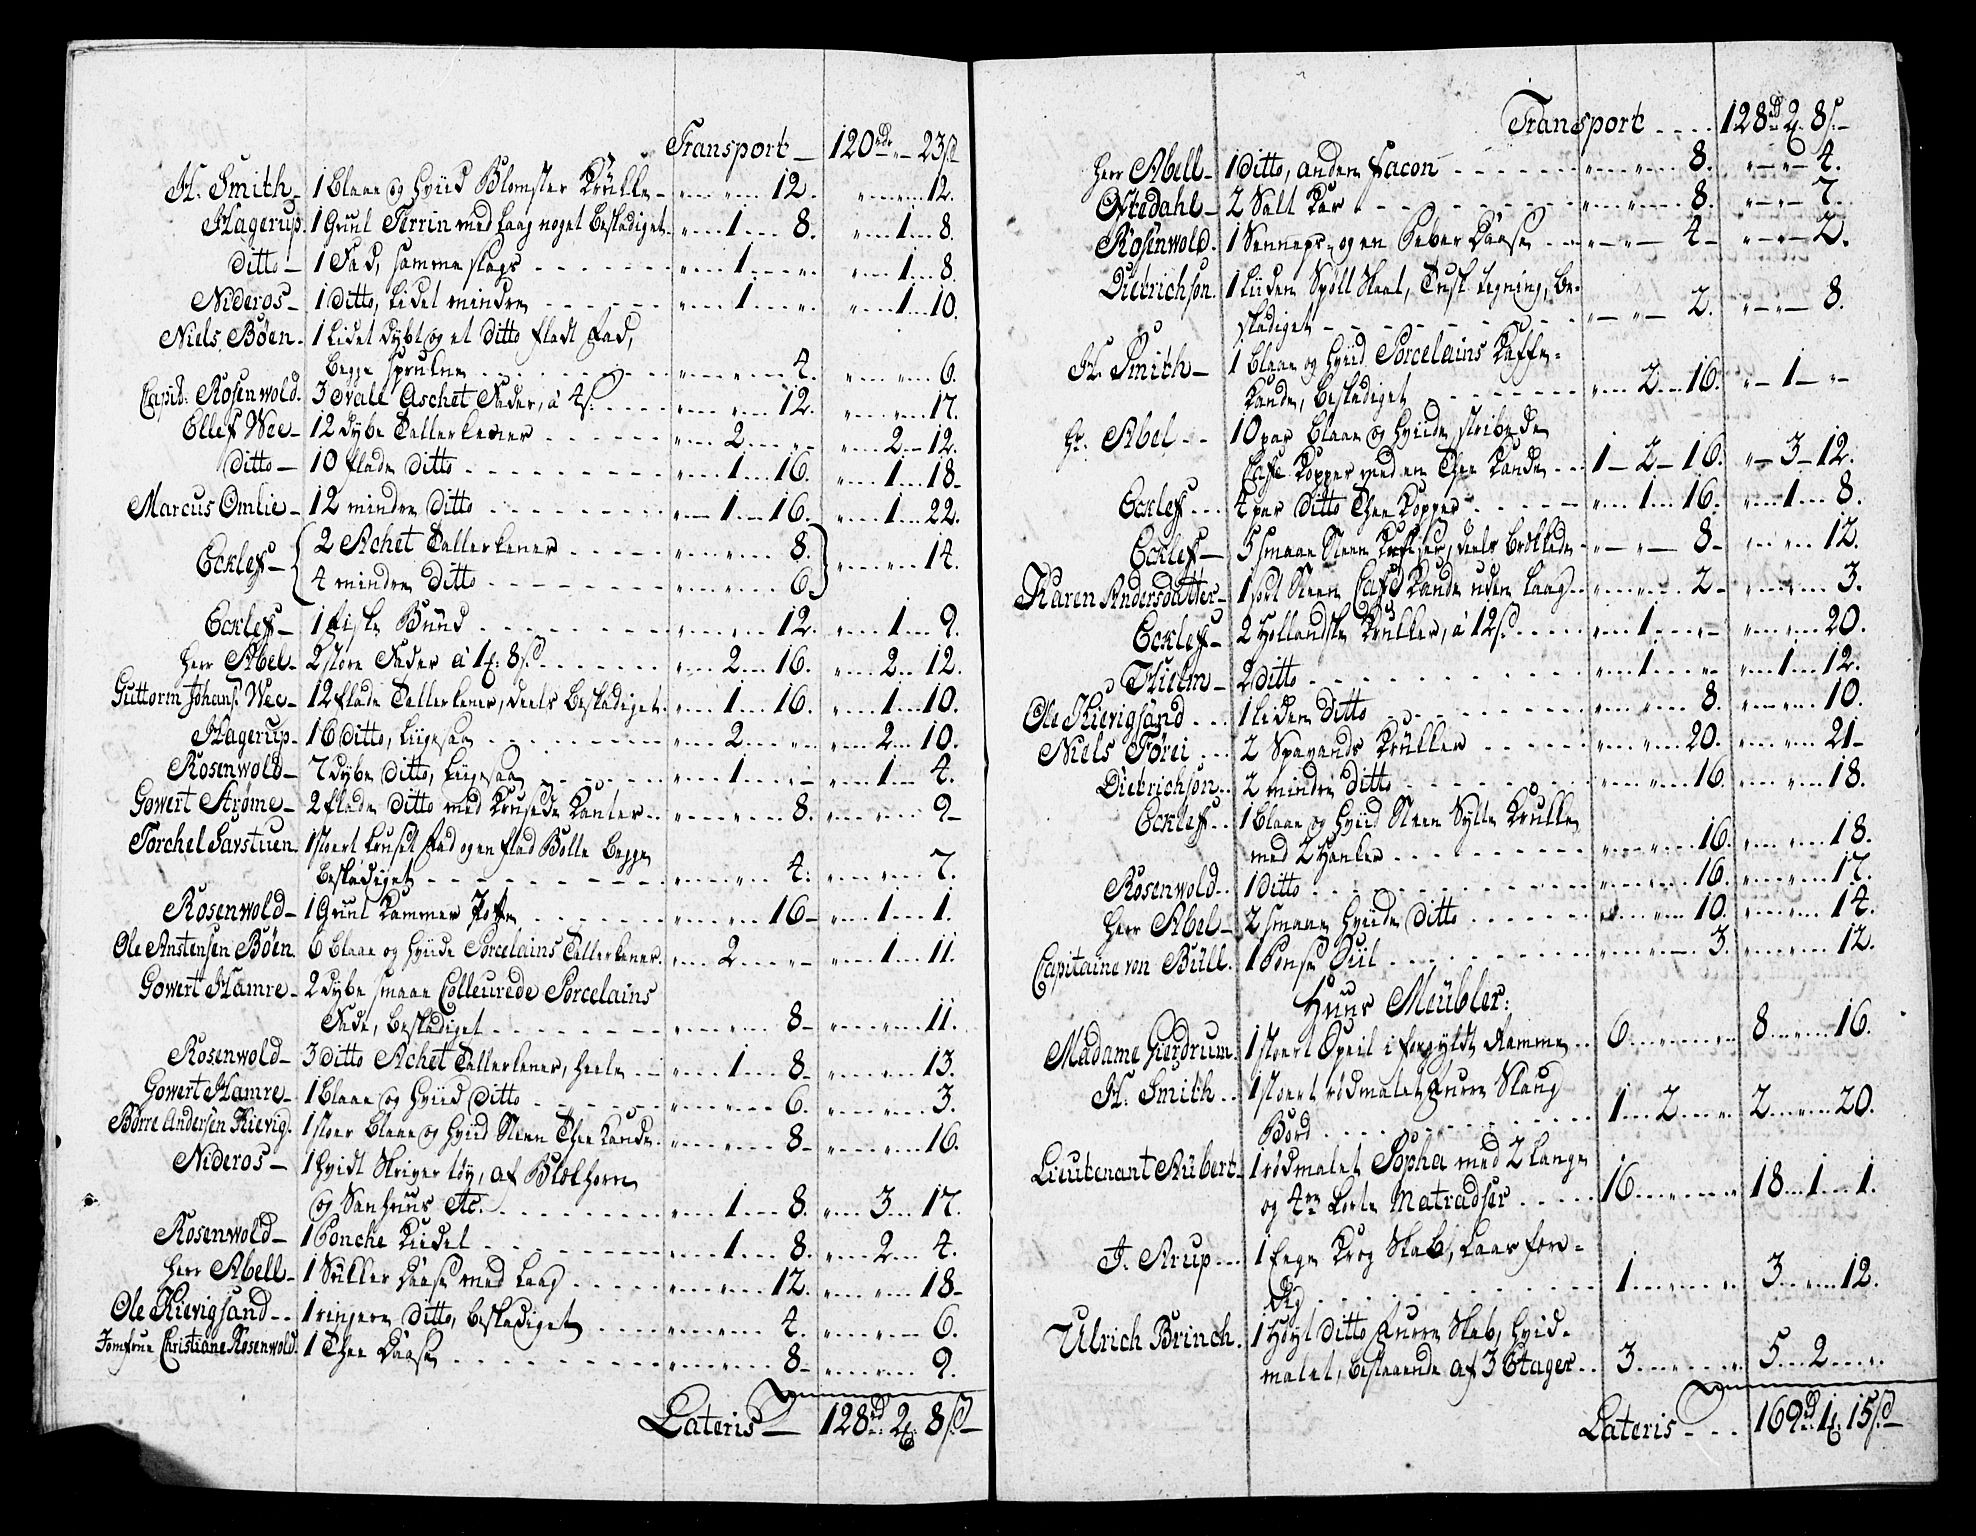 Transport — 120rdr „ 23s
H. Smith — 1 blaae og hviid Blomster Krukke „ „ 12. „ „ 12.
Hagerup. 1 Guul Terrin med laag noget beskadiget „ 1 8. „ 1 8.
ditto — 1 Fad, samme slags „ 1 „ „ 1 8.
Nideros — 1 ditto, lidet mindre „ 1 „ „ 1 10.
Niels Böen. 1 lidet dybt og et ditto fladt Fad,
begge sprukne „ „ 4. „ „ 6.
Capit: Rosenwold. 3 Ovale Aschet Fader, á 4s. „ „ 12. „ „ 17.
Ellef Wee — 12 dybe Tallerkener „ 2 „ „ 2 12.
ditto — 10 flade ditto „ 1 16. „ 1 18
Marcus Omlie — 12 mindre ditto „ 1 16. „ 1 22.
Eckleff — 2 Achet Tallerkener „ „ 8. „ „ 14.
4 mindre ditto „ „ 6.
Eckleff — 1 fiske Bund „ „ 12. „ 1 9.
herr Abel — 2 store Fader á 1. 8s. „ 2 16. „ 2 12.
Guttorm Johans: Wee — 12 flade Tallerkener, deels beskadiget „ 1 16. „ 1 10.
Hagerup — 16 ditto, liigesaa „ 2 „ „ 2 10.
Rosenwold — 7 dybe ditto, liigesaa „ 1 „ „ 1 4.
Gowert Strøme — 2 flade ditto med krusede Kanter „ „ 8. „ „ 9
Torchel Sarstuen 1 stoert kruset Fad og en flad Bolle begge
beskadiget „ „ 4. „ „ 7.
Rosenwold — 1 Guul Kammer Potte „ „ 16 „ 1 1.
Ole Anstensen Böen. 6 blaae og hviide Porcelains Tallerkener. „ 2 „ „ 1 11.
Gowert Hamre — 2 dybe smaae Colleurede Porcelains
Fade, beskadiget „ „ 8 „ „ 11.
Rosenwold — 3 ditto Achet Tallerkener, heele „ 1 8 „ „ 13.
Gowert Hamre — 1 blaae og hviid ditto „ „ 6. „ „ 3.
Børre Andersen Kievig. 1 stoer blaae og hviid Steen Thee Kande „ „ 8 „ „ 16.
Nideros — 1 hvidt Skriver töy, af Blækhorn
og Sandhuus Etc. „ 1 8. „ 3 17.
Rosenwold — 1 Ponche Kiedel „ 1 8. „ 2 4.
herr Abell — 1 Sukker Daase med laag „ „ 12. „ „ 18
Ole Kievigsand 1 ringere ditto, beskadiget „ „ 4. „ „ 6.
Jomfrue Christiane Rosenwold. 1 Thee Daase „ „ 8 „ „ 9.
Lateris — 128rd 2 8s
Transport 128rd 2 8s
herr Abell — 1 ditto, anden Facon „ „ 8. „ „ 4.
Omdahl — 2 Salt Kar „ „ 8. „ „ 7.
Rosenwold. 1 Senneps- og en Peber Daase „ „ 4 „ „ 2.
Dietrichson. 1 liiden Spöll Skaal, Tusk tegning, be-
skadiget „ „ 2. „ „ 8.
H. Smith — 1 blaae og hviid Porcelains Kaffe-
kande, beskadiget „ 2 16. „ 1 „
hr. Abel 10 par blaae og hviide, stribede
Caffe Kopper med en Thee Kande 1 2 16. „ 3 12.
Eckleff 4 par ditto Thee Kopper „ 1 16. „ 1 8.
Eckleff — 5 smaae Steen Krukker, deels brökkede „ „ 8 „ „ 12.
Karen Andersdatter — 1 sort Steen Caffe Kande uden laag „ „ 2 „ „ 3.
Eckleff — 2 Hollandske Krukker, á 12s. „ 1 „ „ „ 20.
Thielm — 2 ditto „ 1 „ „ 1 12.
Ole Kievigsand 1 liden ditto „ „ 8 „ „ 10.
Niels Förei 2 Spavands Krukker „ „ 20. „ „ 21
Dietrichson 2 mindre ditto „ „ 16. „ „ 18.
Eckleff 1 blaae og hviid Steen Sylte Krukke
med 2 Hanker „ „ 16. „ „ 18.
Rosenwold 1 ditto „ „ 16. „ „ 17.
herr Abel — 2 smaae hviide ditto „ „ 10. „ „ 14.
Capitaine von Büll. 1 Ponse Öiil „ „ 3. „ „ 12.
Huus Meübler:
Madame Gierdrum 1 stoert Speil i forgyldt Ramme 6 „ „ 8 „ 16.
H. Smith 1 stoert rödmalet Furre Slaug
Bord 1 2 „ 2 „ 20.
Lieutenant Aubert 1 rödmalet Sopha med 2 lange
og 4re korte Matradser 16 „ „ 18 1 1.
J. Arup 1 Eege Krog Skab, laas fær-
dig 1 „ „ 3 „ 12.
Ulrich Brinch. 1 Höyt ditto Furre Skab, hvid-
malet, bestaaende af 3 Etager 3 „ „ 5 2 „
Lateris 169rd 1 15s